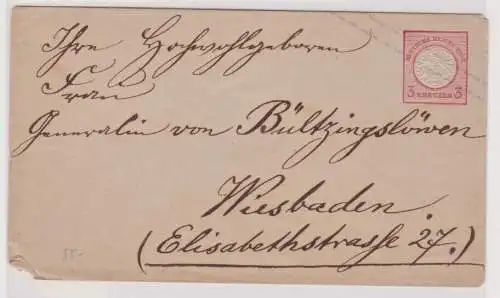 Ihre Hochwohlgeboren
Frau
Generalin von Bültzingslöwen
Wiesbaden.
(Elisabethstrasse 27.)
DEUTSCHE REICHS-POST
3 KREUZER 3